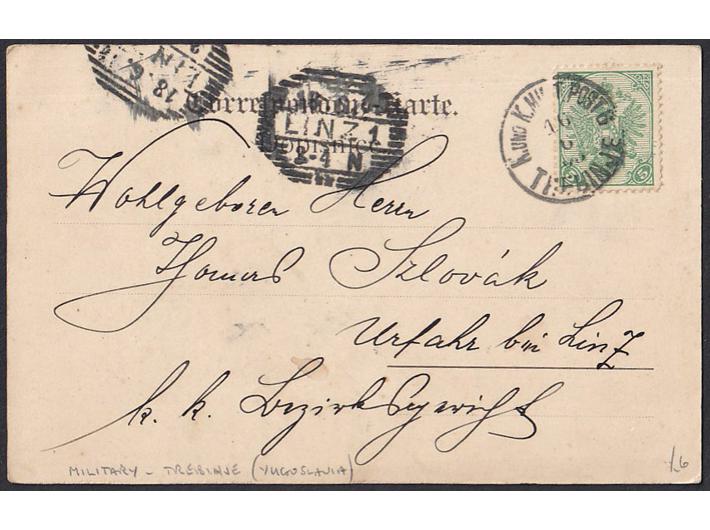 Correspondenz-Karte.
Dopisnica
LINZ 1
3-4 N
LIN
18
K. UND K. MILIT. POST
TREBINJE
5
5
Wohlgeboren Herrn
Thomas Szlovák
Urfahr bei Linz
k. k. Bezirksgericht
MILITARY - TREBINJE (YUGOSLAVIA)